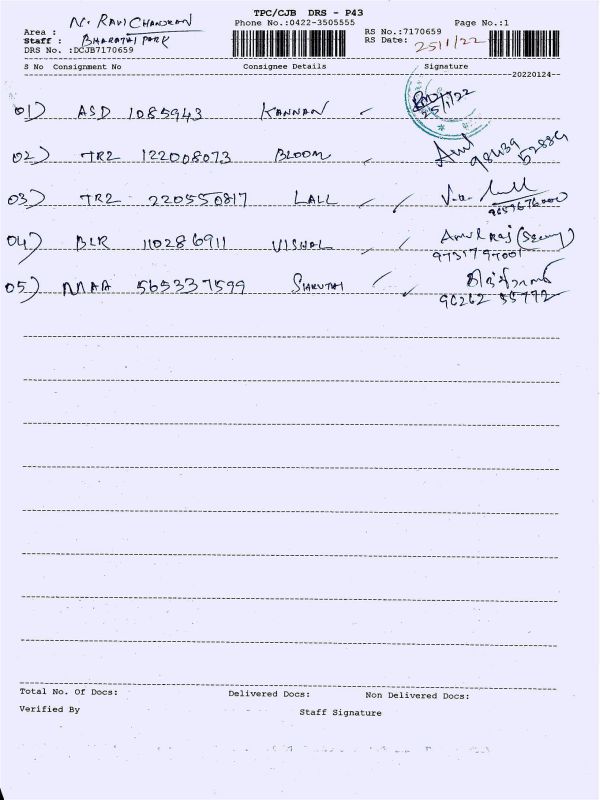 TPC/CJB DRS - P43
N. RAVI CHANDRAN
Phone No.:0422-3505555
Page No.:1
Area :
RS No.:7170659
Staff : BHARATHI PARK
RS Date: 25/1/22
DRS No. :DCJB7170659
S No Consignment No Consignee Details Signature
--20220124--
01) ASD 1085943 KANNAN 25/1/22
02) TRZ 122008073 BLOOM 98439 52889
03) TRZ 220550817 LALL
04) BLR 110286911 VISHAL Amul Raj
9731797001
05) MAA 565337599
90262 55772
Total No. Of Docs: Delivered Docs: Non Delivered Docs:
Verified By Staff Signature